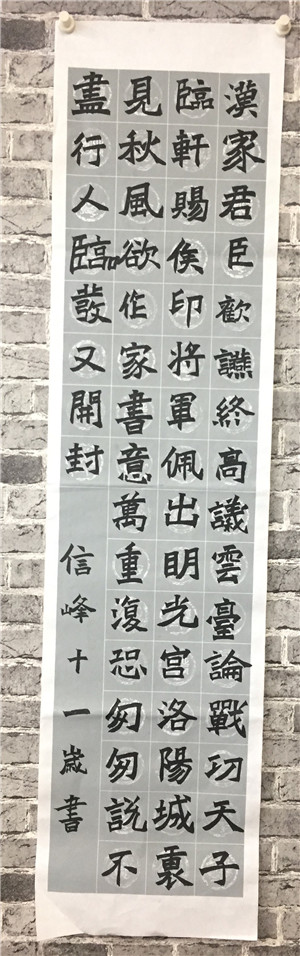 漢家君臣歡讌終高議雲臺論戰功天子
臨軒賜侯印將軍佩出明光宮洛陽城裏
見秋風欲作家書意萬重復恐匆匆説不
盡行人臨發又開封
信峰十一歲書